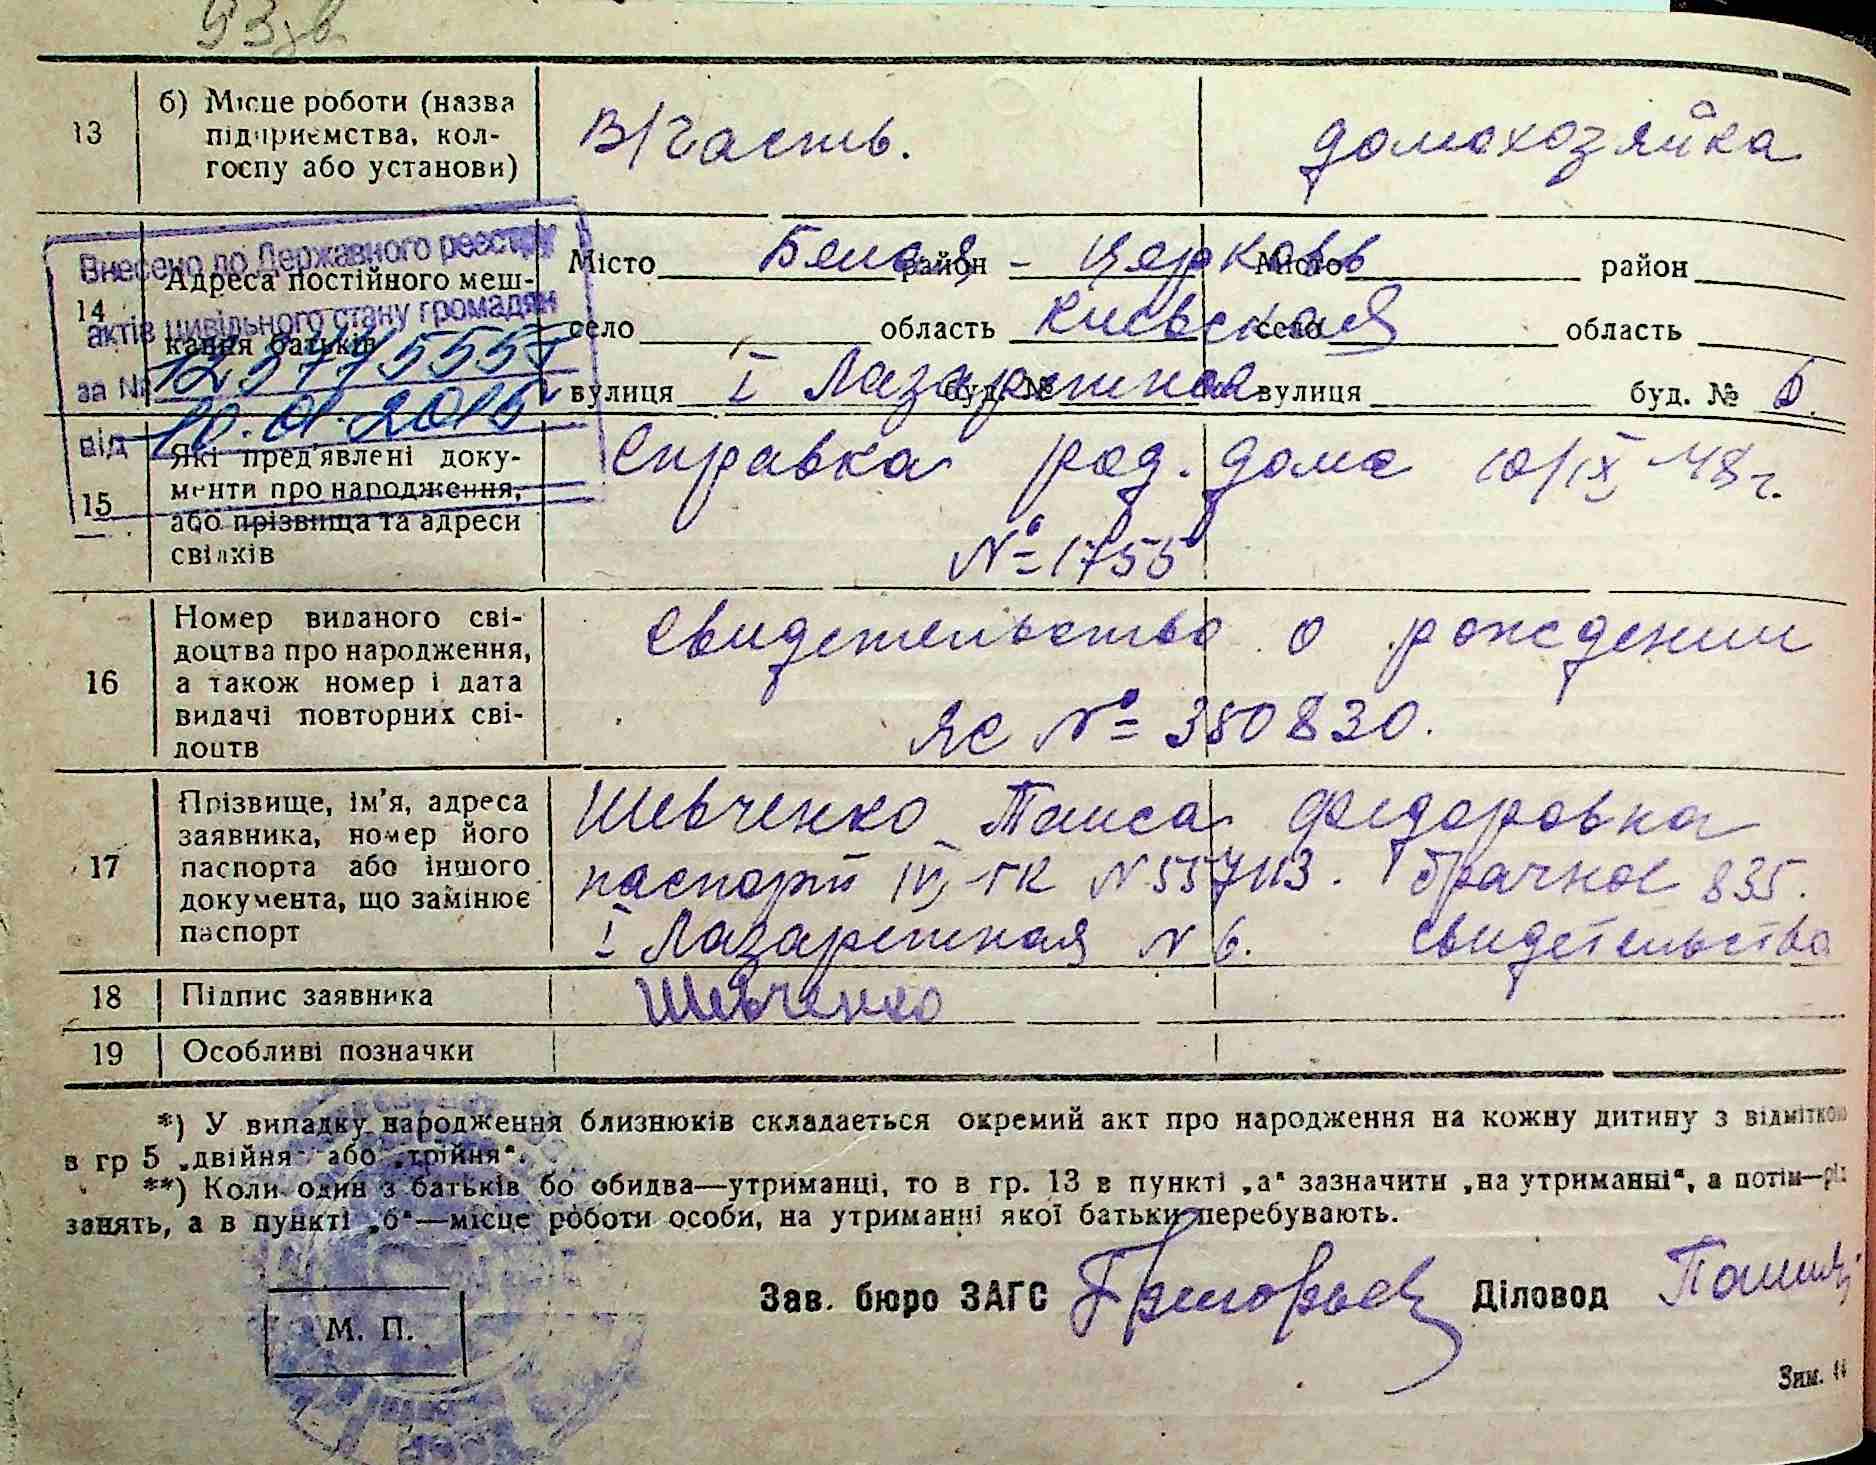 93 зв
13 б) Місце роботи (назва підприємства, колгоспу або установи) В/часть. домохозяйка
Внесено до Державного реєстру
актів цивільного стану громадян
за №
від 10.01.2015
14 Адреса постійного мешкання батьків
Місто Белая - Церковь район Місто район
село область Киевская село область
вулиця I Лазаретная буд. № вулиця буд. № 6.
15 Які пред'явлені документи про народження, або прізвища та адреси свідків
Справка род. дома 10/IX 48 г.
№ 1755
16 Номер виданого свідоцтва про народження, а також номер і дата видачі повторних свідоцтв
Свидетельство о рождении
ЯС № 380830.
17 Прізвище, ім'я, адреса заявника, номер його паспорта або іншого документа, що замінює паспорт
Шевченко Таиса Федоровна
паспорт IV-ГК N 557113. Брачное 835.
I Лазаретная N 6. свидетельство
18 Підпис заявника Шевченко
19 Особливі позначки
*) У випадку народження близнюків складається окремий акт про народження на кожну дитину з відміткою
в гр 5 „двійня“ або „трійня“.
**) Коли один з батьків бо обидва—утриманці, то в гр. 13 в пункті „а“ зазначити „на утриманні“, а потім—рід
занять, а в пункті „б“—місце роботи особи, на утриманні якої батьки перебувають.
Зав. бюро ЗАГС Діловод
М. П.
Зим.